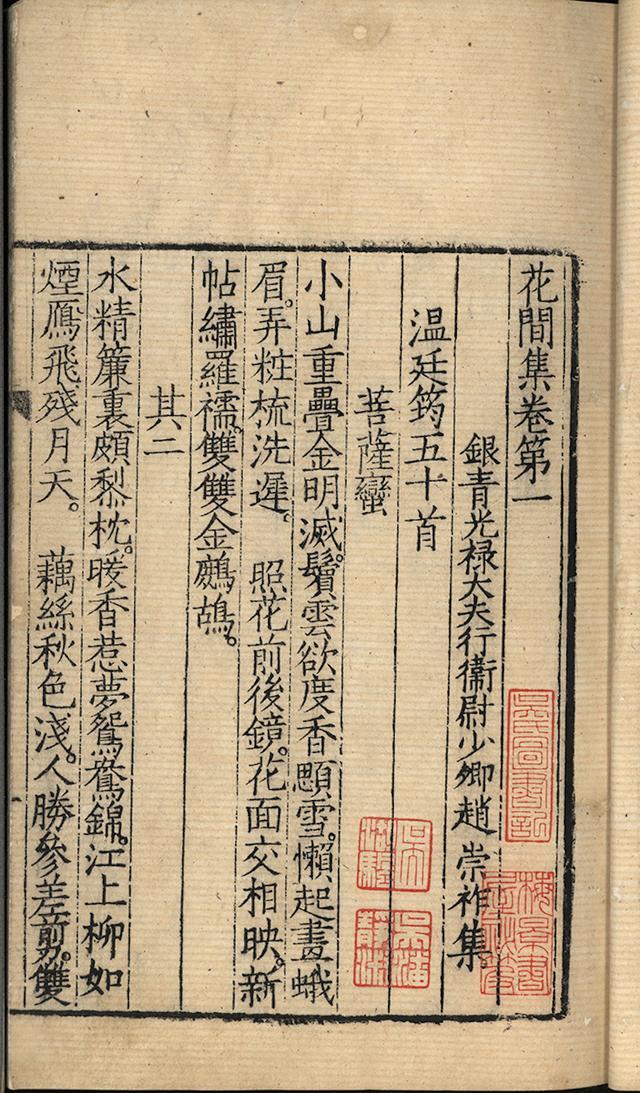 花間集卷第一
銀青光禄大夫行衞尉少卿趙 崇祚集
温廷筠五十首
菩薩蠻
小山重疊金明滅。鬢雲欲度香顋雪。懶起畫蛾
眉。弄粧梳洗遲。 照花前後鏡。花面交相映。新
帖繡羅襦。雙雙金鷓鴣。
其二
水精簾裏頗黎枕。暖香惹夢鴛鴦錦。江上柳如
煙鴈飛殘月天。 藕絲秋色淺。人勝參差剪。雙
吳氏圖書記